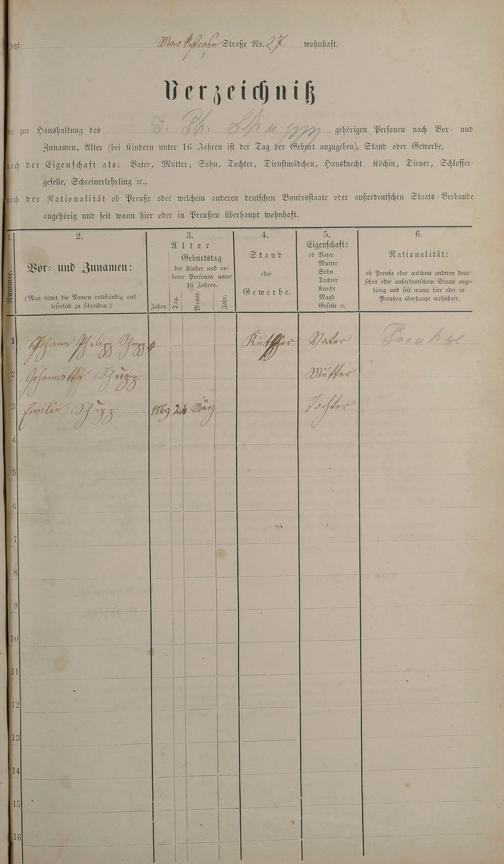 Jetzt Marktstraße Straße No. 27 wohnhaft.
Verzeichniß
der zur Haushaltung des J. Ph. Schupp gehörigen Personen nach Vor- und
Zunamen, Alter (bei Kindern unter 16 Jahren ist der Tag der Geburt anzugeben), Stand oder Gewerbe,
nach der Eigenschaft als: Vater, Mutter, Sohn, Tochter, Dienstmädchen, Hausknecht, Köchin, Diener, Schlosser-
geselle, Schreinerlehrling ꝛc.,
nach der Nationalität ob Preuße oder welchem anderen deutschen Bundesstaate oder außerdeutschen Staats-Verbande
angehörig und seit wann hier oder in Preußen überhaupt wohnhaft.
1. 2. 3. 4. 5. 6.
Nummer.
Vor- und Zunamen:
(Man bittet die Namen vollständig und
leserlich zu schreiben.)
Alter
Geburtstag
der Kinder und an-
derer Personen unter
16 Jahren.
Jahre. Tag. Monat. Jahr.
Stand
oder
Gewerbe.
Eigenschaft:
ob Vater
Mutter
Sohn
Tochter
Knecht
Magd
Geselle ꝛc.
Nationalität:
ob Preuße oder welchem anderen deut-
schen oder außerdeutschen Staate ange-
hörig und seit wann hier oder in
Preußen überhaupt wohnhaft.
1 Johann Philipp Schupp Kutscher Vater Preuße
2 Johannette Schupp Mutter
3 Emilie Schupp 1869 24 März Tochter
4
5
6
7
8
9
10
11
12
13
14
15
16